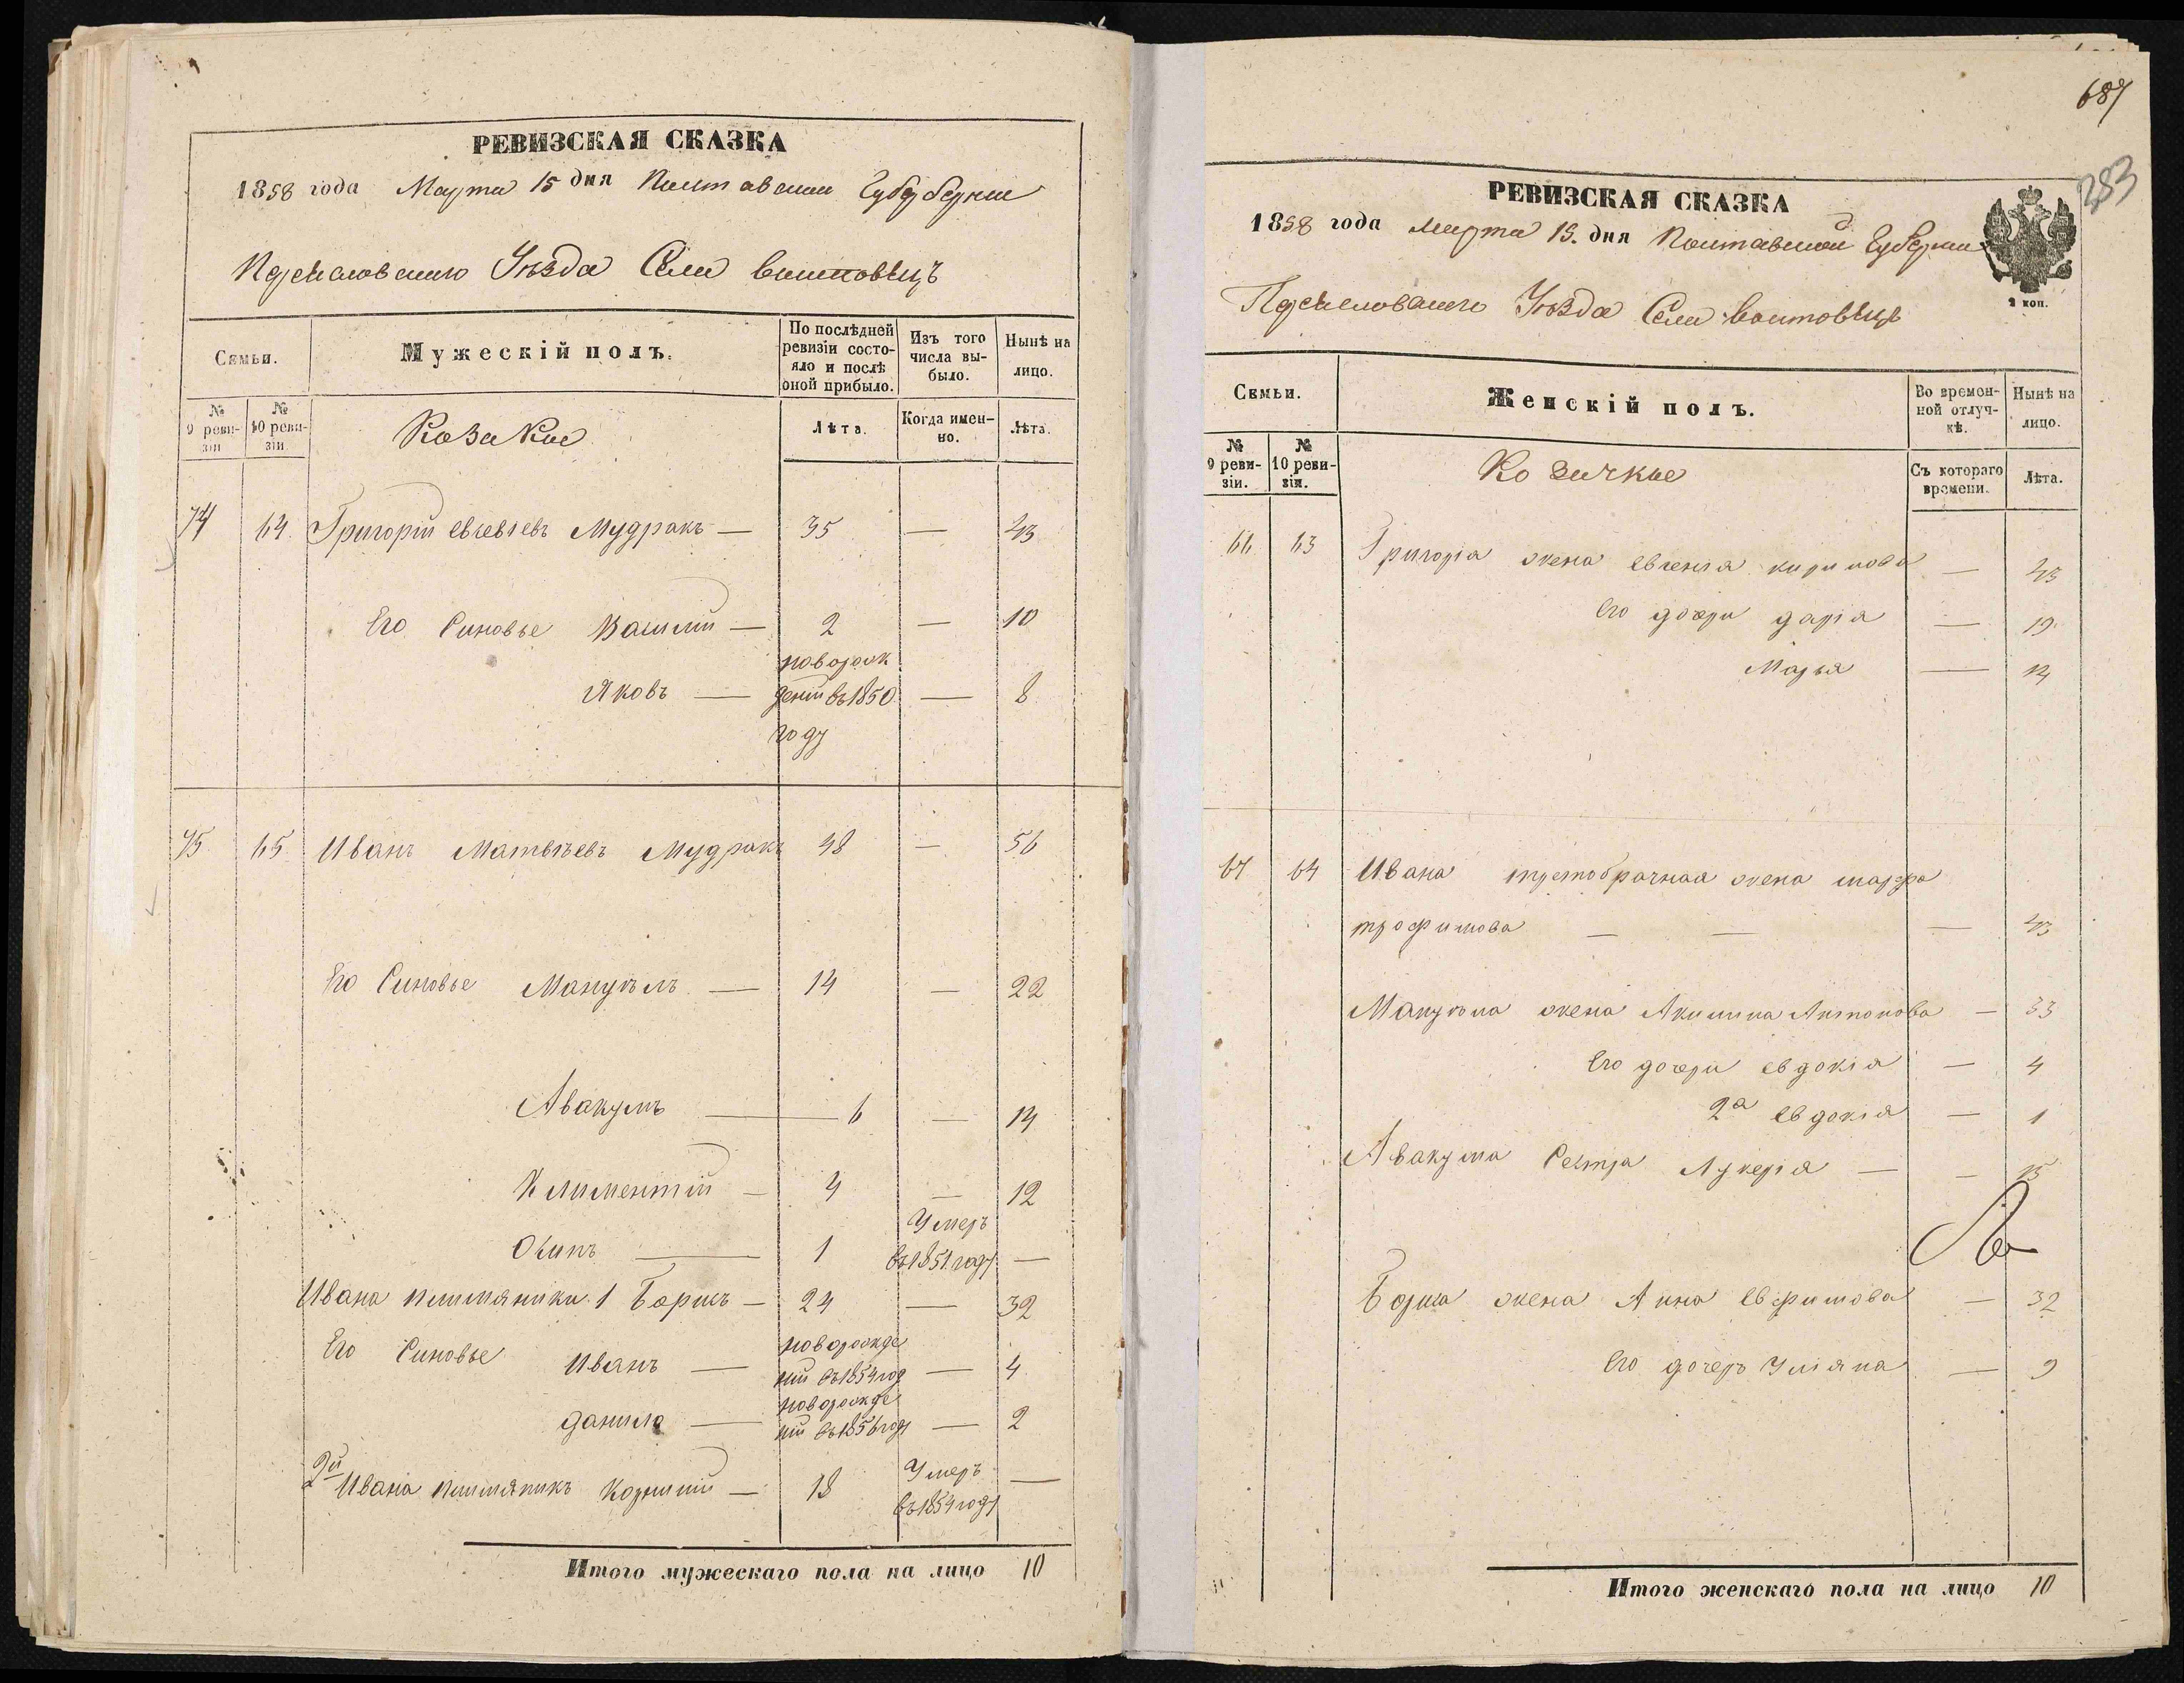 РЕВИЗСКАЯ СКАЗКА
1858 года Марта 15 дня Полтавской Губернии
Переяславскаго Уѣзда Села Воитовѣцъ
Семьи.
Мужескій полъ.
По послѣдней ревизіи состояло и послѣ оной прибыло.
Изъ того числа выбыло.
Нынѣ на лицо.
№ 9 ревизіи
№ 10 ревизіи.
Козаки
Лѣта.
Когда именно.
Лѣта.
74 64 Григорій Евсевіевъ Мудракъ — 35 — 43
Его Синовье Василій — 2 — 10
Яковъ — новорожденій въ 1850 году — 8
75 65 Иванъ Матвѣевъ Мудракъ 48 — 56
Его Синовье Мануълъ — 14 — 22
Авакумъ — 6 — 14
Климентій — 4 — 12
Осипъ — 1 Умеръ въ 1851 году —
Ивана племяники 1 Борисъ — 24 — 32
Его Синовье Иванъ — новорожденій въ 1854 год — 4
данила — новорожденій въ 1856 году — 2
2й Ивана племяникъ Корнилій — 18 Умеръ въ 1854 году —
Итого мужескаго пола на лицо 10
687
283
РЕВИЗСКАЯ СКАЗКА
1858 года Марта 15. дня Полтавской Губернии
2 коп.
Переяславскаго Уѣзда Села Воитовѣцъ
Семьи.
Женскій полъ.
Во временной отлучкѣ.
Нынѣ на лицо.
№ 9 ревизіи.
№ 10 ревизіи.
Козачкы
Съ котораго времени.
Лѣта.
66 63 Григорія жена Евгенія кирилова — 43
Его дочери дарія — 19
Марья — 14
67 64 Ивана третобрачная жена марфа
трофимова — — — 43
Мануъла жена Акилина Антонова — 33
Его дочери евдокія — 4
2а евдокія — 1
Авакума Сестра Лукерія — — 15
Бориса жена Анна Евфимова — 32
Его дочеръ Уліяна — 9
Итого женскаго пола на лицо 10